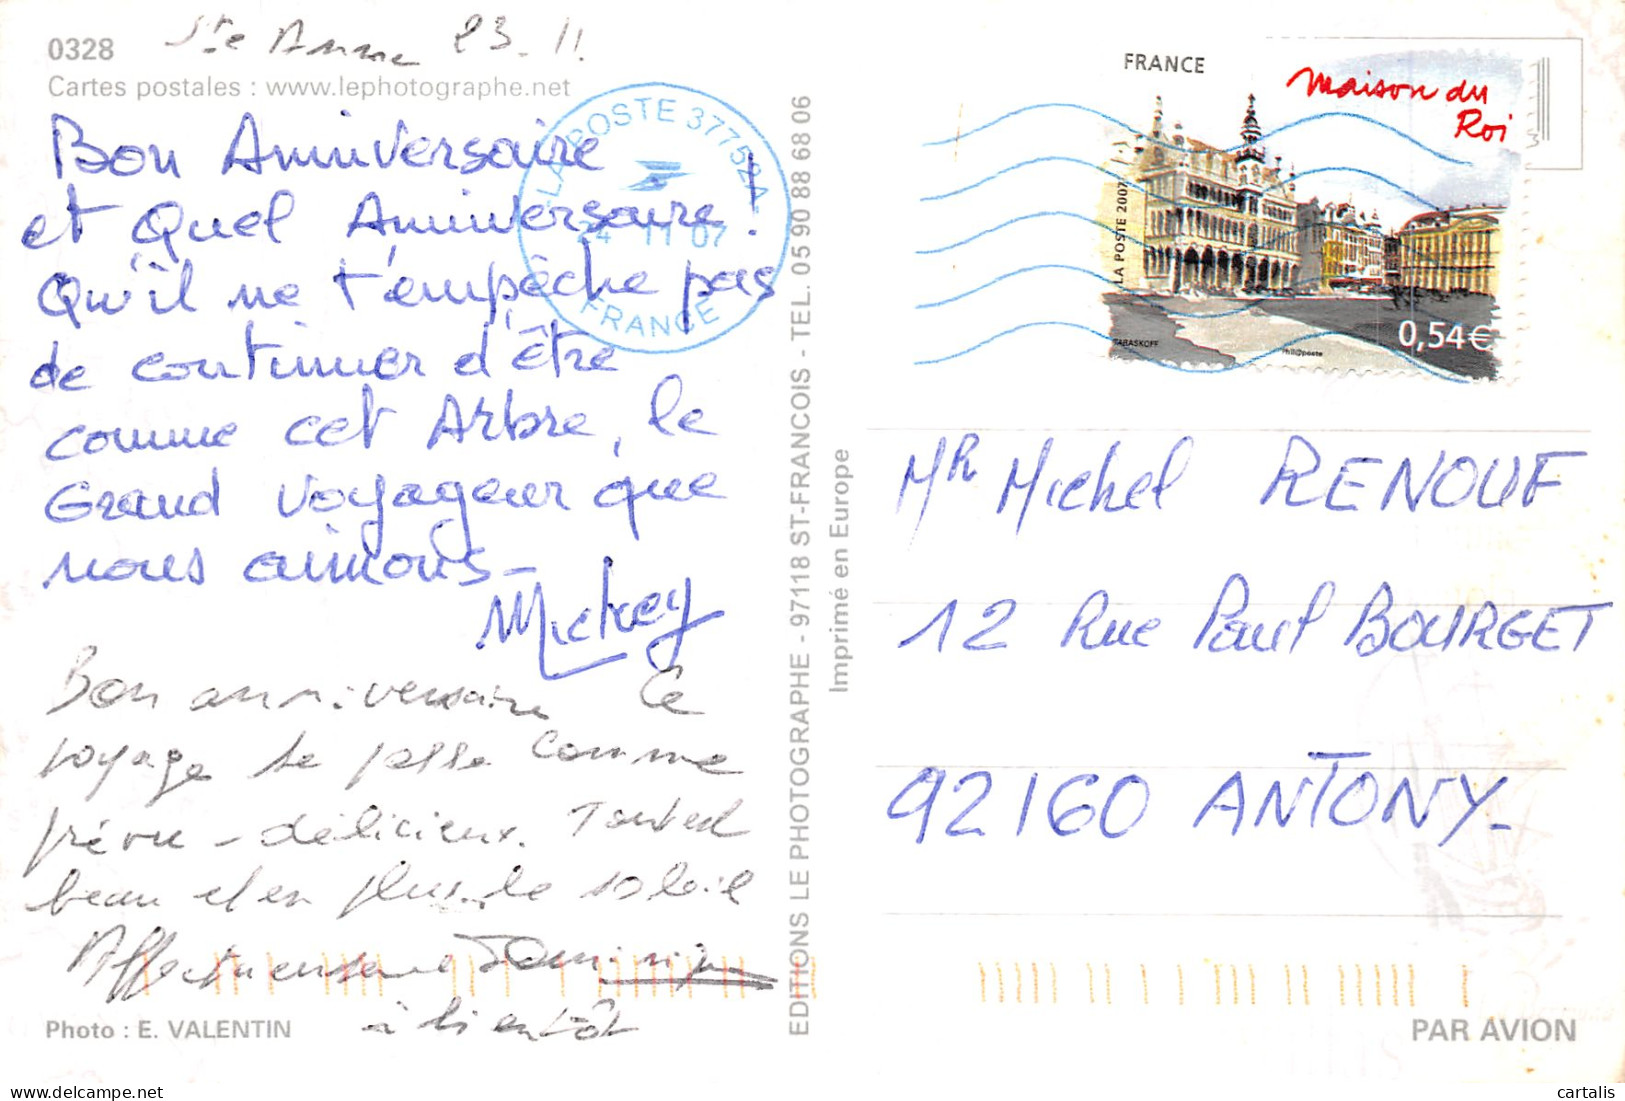 0328
Ste Anne 23.11
Cartes postales : www.lephotographe.net
Bon Anniversaire
et Quel Anniversaire !
Qu'il ne t'empêche pas
de continuer d'être
comme cet Arbre, le
Grand voyageur que
nous aimons -
Mickey
Bon anniversaire Ce
voyage se passe comme
prévu - délicieux. Tout est
beau et en plus le soleil
Affectueusement
à bientôt
Photo : E. VALENTIN
LA POSTE 37752A
24 11 07
FRANCE
EDITIONS LE PHOTOGRAPHE - 97118 ST-FRANCOIS - TEL. 05 90 88 68 06
Imprimé en Europe
FRANCE
Maison du
Roi
LA POSTE 2007
TARASKOFF
Phil@poste
0,54€
Mr Michel RENOUF
12 Rue Paul BOURGET
92160 ANTONY-
PAR AVION
delcampe.net
cartalis